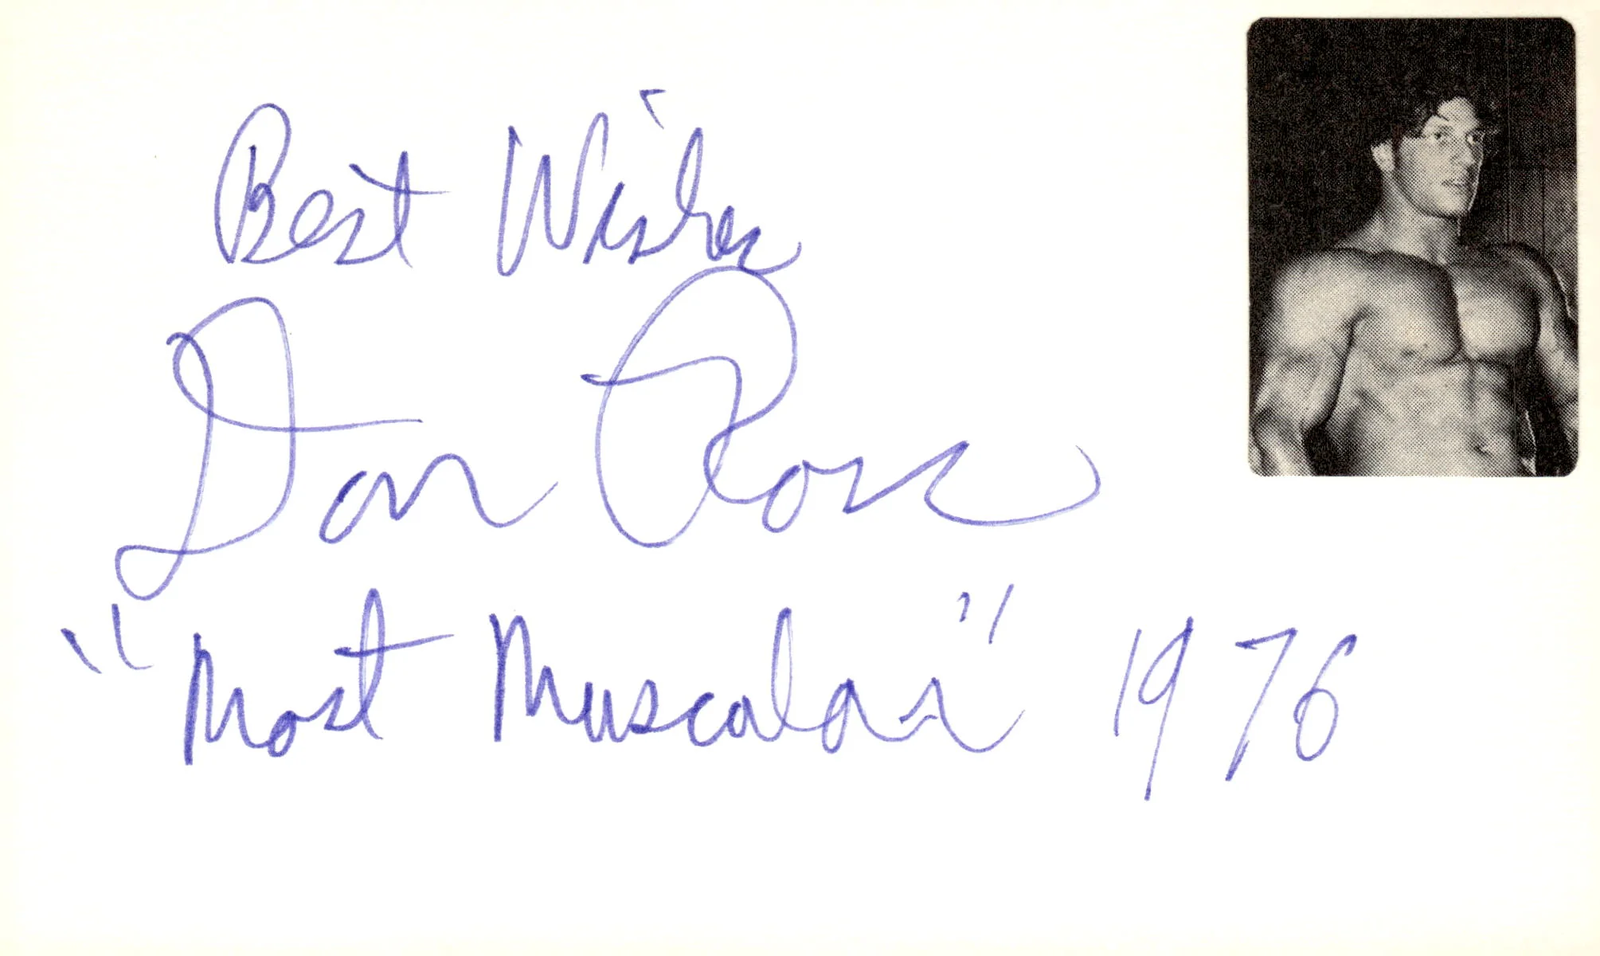 Best Wishes
Don Ross
"Most Muscular" 1976